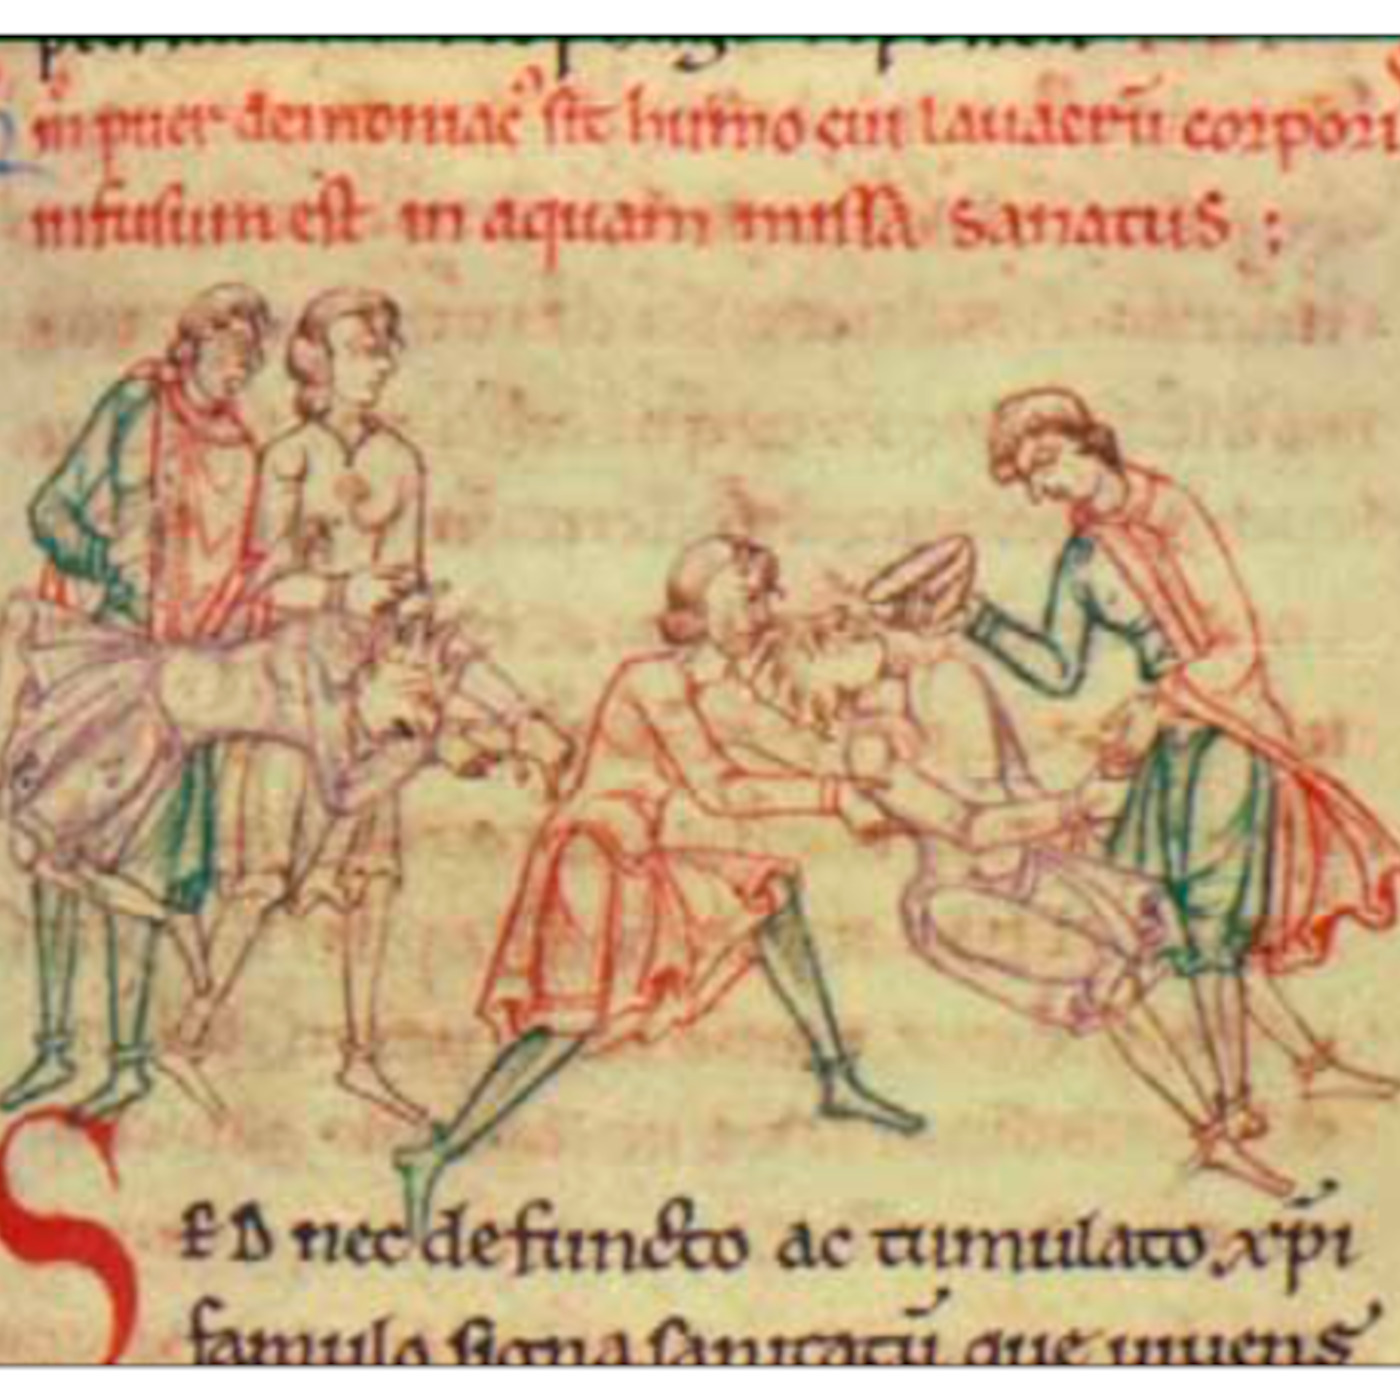 puer demoniac' sit humo cui lavacrū corporis
infusum est in aquam missa sanatus :
SED nec defuncto ac tumulato xp̄i
famulo signa sanitatū que vivens